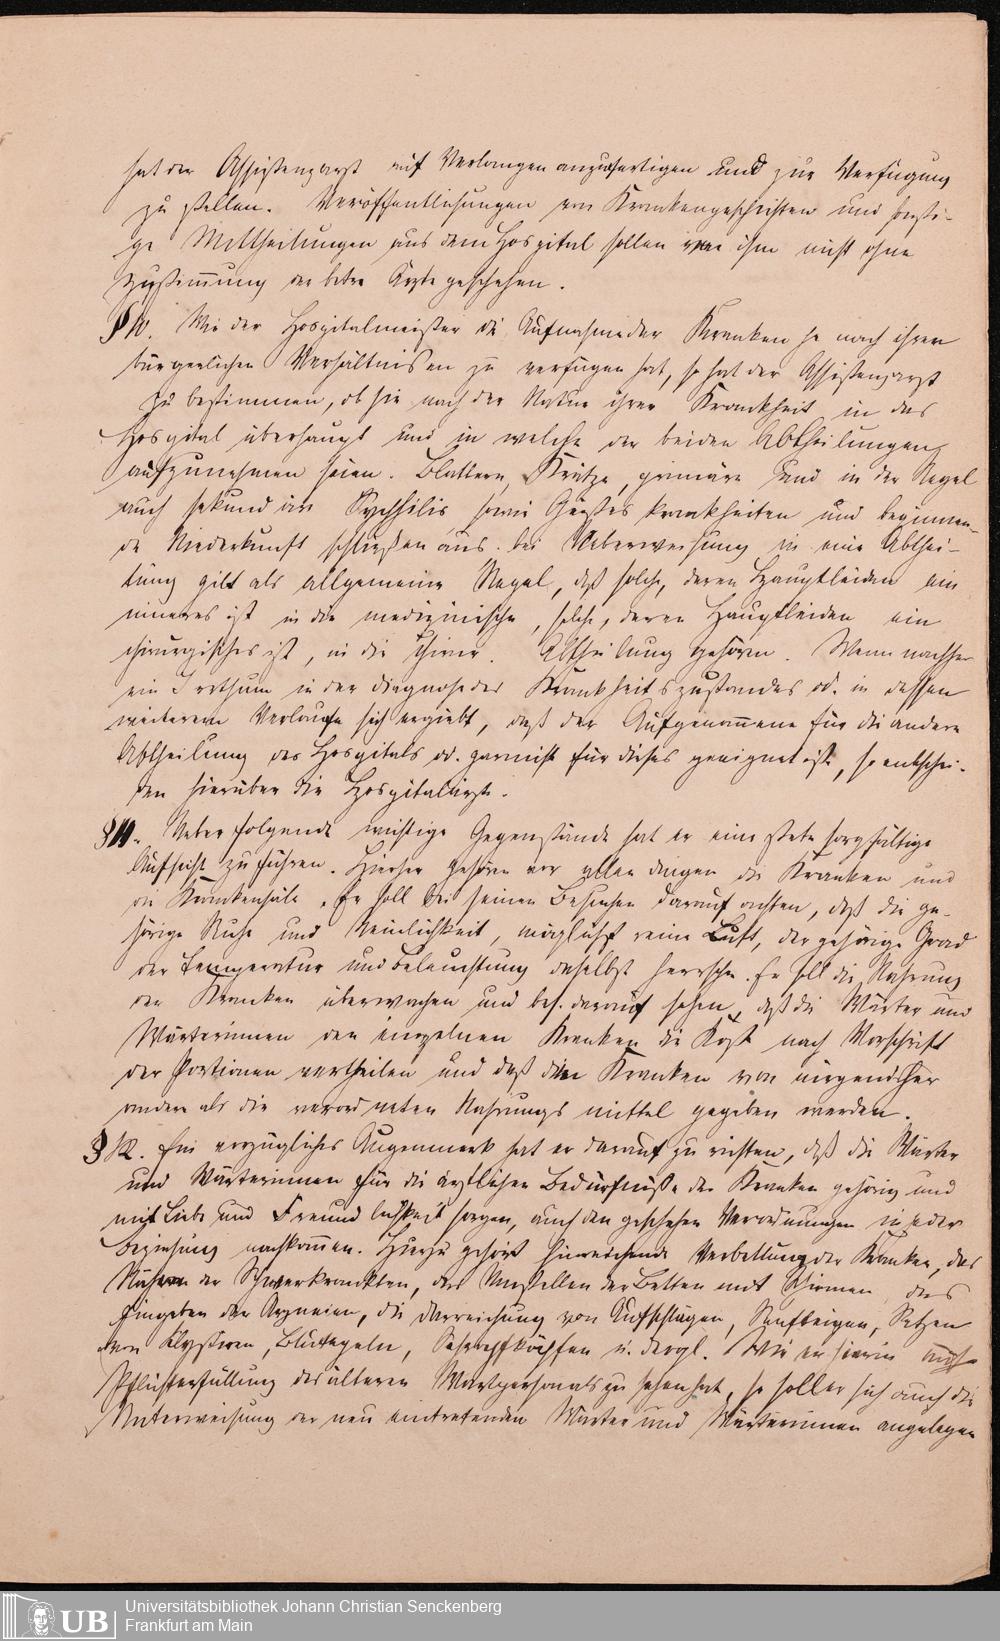 hat der Assistenzarzt auf Verlangen anzufertigen und zur Verfügung
zu stellen. Veröffentlichungen von Krankengeschichten und sonsti-
ge Mittheilungen aus dem Hospital sollen von ihm nicht ohne
Zustimmung der betr. Ärzte geschehen.
§ 10. Wie der Hospitalmeister die Aufnahme der Kranken je nach ihren
bürgerlichen Verhältnissen zu verfügen hat, so hat der Assistenzarzt
zu bestimmen, ob sie nach der Natur ihrer Krankheit in das
Hospital überhaupt und in welche der beiden Abtheilungen
aufzunehmen seien. Blattern, Krätze, primäre und in der Regel
auch sekundäre Syphilis sowie Geisteskrankheiten und beginnen-
de Niederkunft schließen aus. Bei Ueberweisung in eine Abthei-
lung gilt als allgemeine Regel, daß solche, deren Hauptleiden ein
inneres ist in die medizinische, solche, deren Hauptleiden ein
chirurgisches ist, in die chirur. Abtheilung gehören. Wenn nachher
ein Irrthum in der Diagnose des Krankheitszustandes od. in dessen
weiterem Verlaufe sich ergiebt, daß der Aufgenommene für die andere
Abtheilung des Hospitals od. gar nicht für dieses geeignet ist, so entschei-
den hierüber die Hospitalärzte.
§ 11. Ueber folgende wichtige Gegenstände hat er eine stete sorgfältige
Aufsicht zu führen. Hierher gehören vor allen Dingen die Kranken und
die Krankensäle. Er soll bei seinen Besuchen darauf achten, daß die ge-
hörige Ruhe und Reinlichkeit, möglichst reine Luft, der gehörige Grad
der Temperatur und Beleuchtung daselbst herrsche. Er soll die Nahrung
der Kranken überwachen und bes. darauf sehen, daß die Wärter und
Wärterinnen den einzelnen Kranken die Kost nach Vorschrift
der Portionen vertheilen und daß den Kranken von nirgendher
andere als die verordneten Nahrungsmittel gegeben werden.
§ 12. Ein vorzügliches Augenmerk hat er darauf zu richten, daß die Wärter
und Wärterinnen für die ärztlichen Bedürfnisse der Kranken gehörig und
mit Liebe und Freundlichkeit sorgen, auch den geschehenen Verordnungen in jeder
Beziehung nachkommen. Hierzu gehört hinreichende Verbettung der Kranken, das
der Schwerkrankten, das Verstellen der Betten mit Schirmen, das
Eingeben der Arzneien, die Darreichung von Aufschlägen, Senfteigen, Setzen
von Klystiren, Blutegeln, Schröpfköpfen u. dergl. Wie er hierin auf
Pflichterfüllung des älteren Wartpersonals zu sehen hat, so soll er sich auch die
Unterweisung der neu eintretenden Wärter und Wärterinnen angelegen
UB
Universitätsbibliothek Johann Christian Senckenberg
Frankfurt am Main